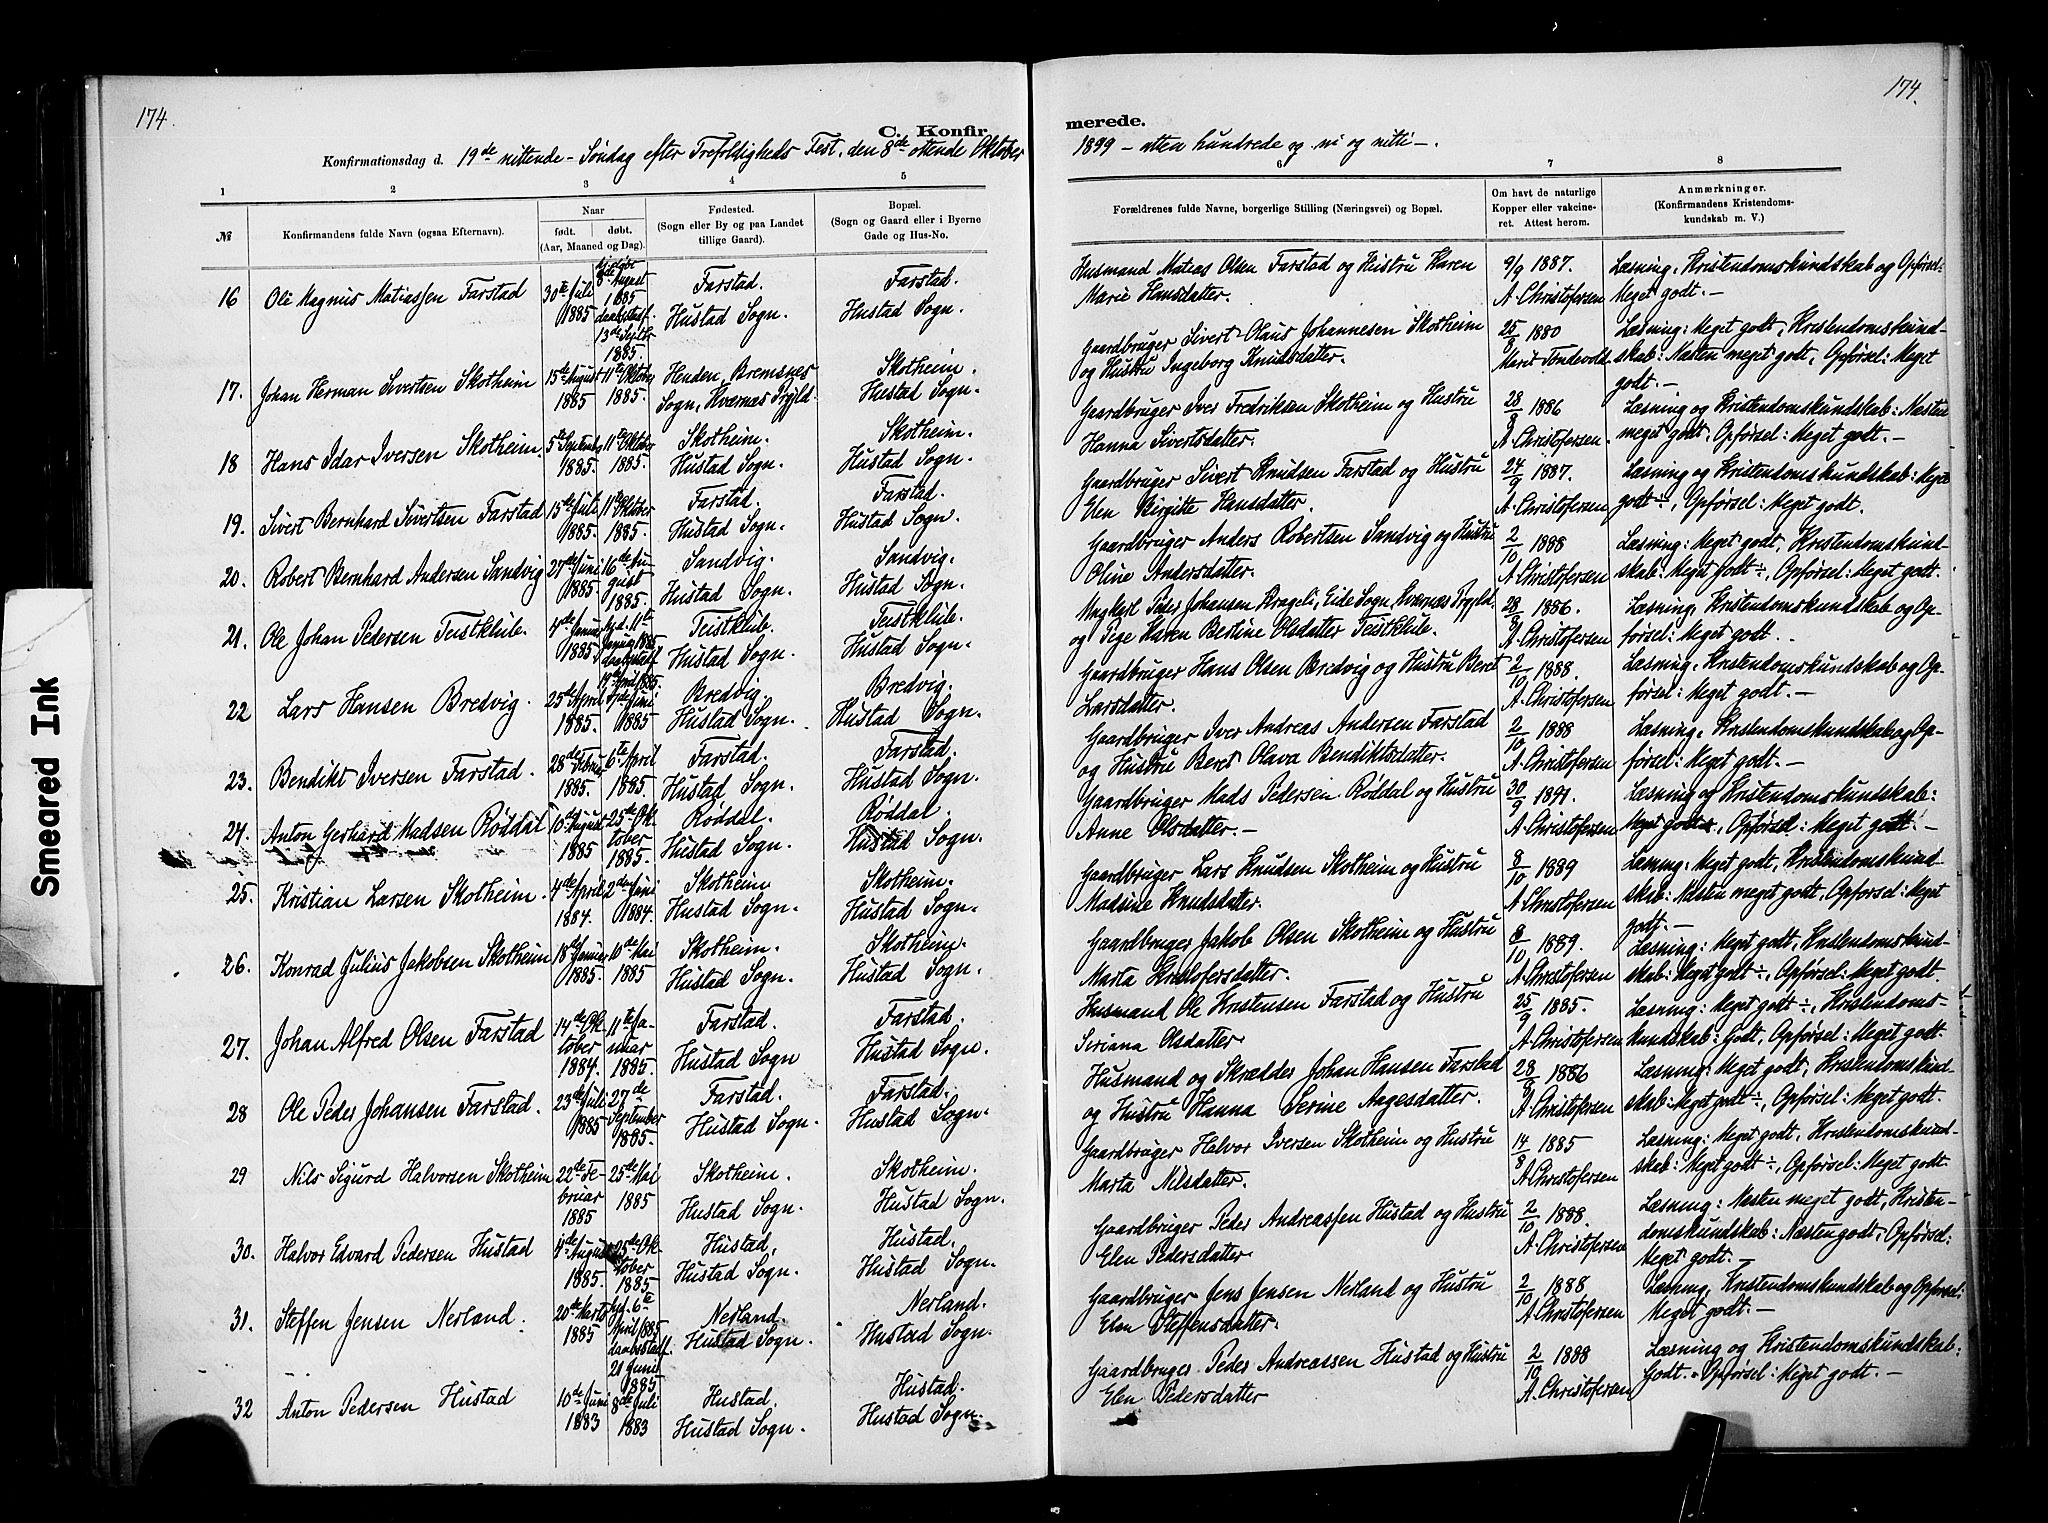 174.
C. Konfir
Konfirmationsdag d. 19de nittende - Søndag efter Trefoldigheds Fest, den 8de ottende Oktober
1
2
3
4
5
№
Konfirmandens fulde Navn (ogsaa Efternavn).
Naar
født. døbt.
(Aar, Maaned og Dag).
Fødested.
(Sogn eller By og paa Landet
tillige Gaard).
Bopæl.
(Sogn og Gaard eller i Byerne
Gade og Hus-No.
16 Ole Magnus Matiassen Farstad 30te Juli 1885 hj. døbt August 1885 daabstadf. 13de Septbr 1885. Farstad. Hustad Sogn. Farstad. Hustad Sogn.
17. Johan Herman Sivertsen Skotheim 15de August 1885 11te Oktober 1885. Henden, Bremsnes Sogn, Kværnæs Prgjld. Skotheim. Hustad Sogn.
18 Hans Idar Iversen Skotheim. 5te Septemb 1885. 11te Oktober 1885. Skotheim. Hustad Sogn. Skotheim. Hustad Sogn.
19. Sivert Bernhard Sivertsen Farstad 15de Juli 1885. 11te Oktober 1885. Farstad. Hustad Sogn. Farstad. Hustad Sogn.
20. Robert Bernhard Andersen Sandvig 27de Juni 1885. 16de August 1885. Sandvig. Hustad Sogn. Sandvig. Hustad Sogn.
21. Ole Johan Pedersen Teistklub. 4de Januar 1885 hjd. 11te Januar 1885 daabstadf. 19de April 1885. Teistklub. Hustad Sogn. Teistklub. Hustad Sogn.
22 Lars Hansen Bredvig. 25de April 1885. Juni 1885 Bredvig. Hustad Sogn. Bredvig. Hustad Sogn.
23. Bendikt Iversen Farstad. 28de Februar 1885. 6te April 1885. Farstad. Hustad Sogn. Farstad. Hustad Sogn.
24. Anton Gerhard Madsen Røddal 10de August 1885 25de Oktober 1885. Røddal. Hustad Sogn. Røddal Hustad Sogn.
25. Kristian Larsen Skotheim. 4de April 1884. 2den Juni 1884. Skotheim Hustad Sogn. Skotheim. Hustad Sogn.
26. Konrad Julius Jakobsen Skotheim 18de Januar 1885. 10de Mai 1885 Skotheim. Hustad Sogn. Skotheim. Hustad Sogn.
27. Johan Alfred Olsen Farstad 14de Oktober 1884. 11te Januar 1885. Farstad. Hustad Sogn Farstad. Hustad Sogn.
28 Ole Peder Johansen Farstad. 23de Juli 1885 27de September 1885. Farstad. Hustad Sogn. Farstad. Hustad Sogn.
29 Nils Sigurd Halvorsen Skotheim 22de Februar 1885 25de Mai 1885 Skotheim. Hustad Sogn. Skotheim. Hustad Sogn.
30. Halvor Edvard Pedersen Hustad 4de August 1885. 25de Oktober 1885 Hustad. Hustad Sogn. Hustad. Hustad Sogn.
31. Steffen Jensen Nerland. 20de Marts 1885 hjd. 6te April 1885 daabstadf. 21 Juni 1885 Nerland. Hustad Sogn. Nerland. Hustad Sogn.
32 Anton Pedersen Hustad 10de Juni 1883 8de Juli 1883 Hustad. Hustad Sogn. Hustad. Hustad Sogn.
174.
merede.
1899 - atten hundrede og ni og nitti -.
6
7
8
Forældrenes fulde Navne, borgerlige Stilling (Næringsvei) og Bopæl.
Om havt de naturlige
Kopper eller vakcine-
ret. Attest herom.
Anmærkninger.
(Konfirmandens Kristendoms-
kundskab m. V.)
Husmand Matias Olsen Farstad og Hustru Karen Marie Hansdatter. 9/9 1887. A. Christofersen Læsning, Kristendomskundskab og Opførsel: Meget godt. -
Gaardbruger Sivert Olaus Johannesen Skotheim og Hustru Ingeborg Knudsdatter. 25/8 1880 Marit Læsning: Meget godt, Kristendomskundskab: Næsten meget godt, Opførsel: Meget godt. -
Gaardbruger Iver Fredriksen Skotheim og Hustru Hanna Sivertsdatter. 28/9 1886 A. Christofersen. Læsning og Kristendomskundskab: Næsten meget godt, Opførsel: Meget godt. -
Gaardbruger Sivert Knudsen Farstad og Hustru Elen Birgitte Hansdatter. 24/9 1887. A. Christofersen Læsning og Kristendomskundskab: Meget godt ÷, Opførsel: Meget godt.
Gaardbruger Anders Robertsen Sandvig og Hustru Oline Andersdatter. 2/10 1888 A. Christofersen Læsning: Meget godt, Kristendomskundskab: Meget godt ÷, Opførsel: Meget godt.
Ungkarl Peder Johansen Krageli, Eide Sogn, Kværnæs Prgjld. og Pige Karen Bertine Olsdatter Teistklub. 28/8 1886. A. Christofersen Læsning, Kristendomskundskab og Opførsel: Meget godt. -
Gaardbruger Hans Olsen Bredvig og Hustru Beret Larsdatter. 2/10 1888. A. Christofersen Læsning, Kristendomskundskab og Opførsel: Meget godt. -
Gaardbruger Iver Andreas Andersen Farstad og Hustru Beret Olava Bendiktsdatter. 2/10 1888 A. Christofersen Læsning, Kristendomskundskab og Opførsel: Meget godt. -
Gaardbruger Mads Pedersen Røddal og Hustru Anne Olsdatter. - 30/9 1891. A. Christofersen Læsning og Kristendomskundskab: Meget godt, Opførsel: Meget godt. -
Gaardbruger Lars Knudsen Skotheim og Hustru Madsine Knudsdatter. 8/10 1889 A. Christofersen Læsning: Meget godt, Kristendomskundskab: Næsten meget godt, Opførsel: Meget godt. -
Gaardbruger Jakob Olsen Skotheim og Hustru Marta Kristofersdatter. 8/10 1889. A. Christofersen Læsning: Meget godt, Kristendomskundskab: Meget godt ÷, Opførsel: Meget godt.
Husmand Ole Kristensen Farstad og Hustru Seriana Olsdatter. 25/9 1885. A. Christofersen Læsning: Meget godt ÷, Kristendomskundskab: Godt, Opførsel: Meget godt.
Husmand og Skrædder Johan Hansen Farstad og Hustru Hanna Serine Aagesdatter. 28/8 1886 A. Christofersen Læsning: Meget godt, Kristendomskundskab: Meget godt ÷, Opførsel: Meget godt.
Gaardbruger Halvor Iversen Skotheim og Hustru Marta Nilsdatter. 14/8 1885 A. Christofersen Læsning: Meget godt, Kristendomskundskab: Meget godt ÷, Opførsel: Meget godt.
Gaardbruger Peder Andreassen Hustad og Hustru Elen Pedersdatter 2/10 1888. A. Christofersen Læsning: Næsten meget godt, Kristendomskundskab: Næsten godt, Opførsel: Meget godt. -
Gaardbruger Jens Jensen Nerland og Hustru Elen Steffensdatter. 2/10 1888 A. Christofersen Læsning, Kristendomskundskab og Opførsel: Meget godt. -
Gaardbruger Peder Andreassen Hustad og Hustru Elen Pedersdatter 2/10 1888 A. Christofersen Læsning og Kristendomskundskab: Godt. Opførsel: Meget godt. -
Smeared Ink